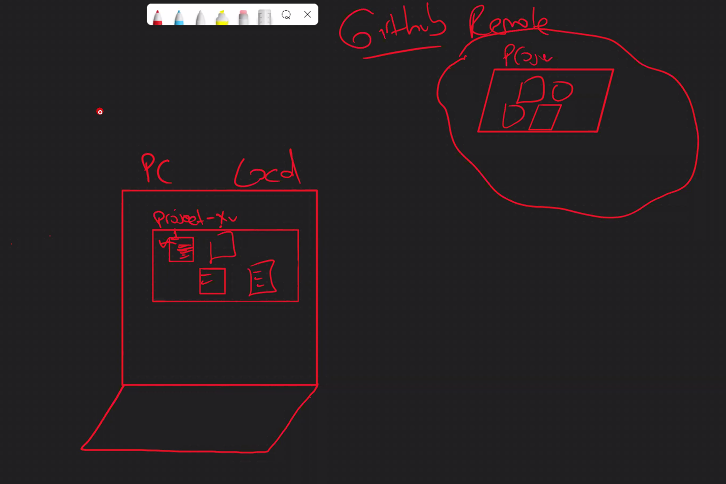 Github Remote
PC Local
Project-Xv